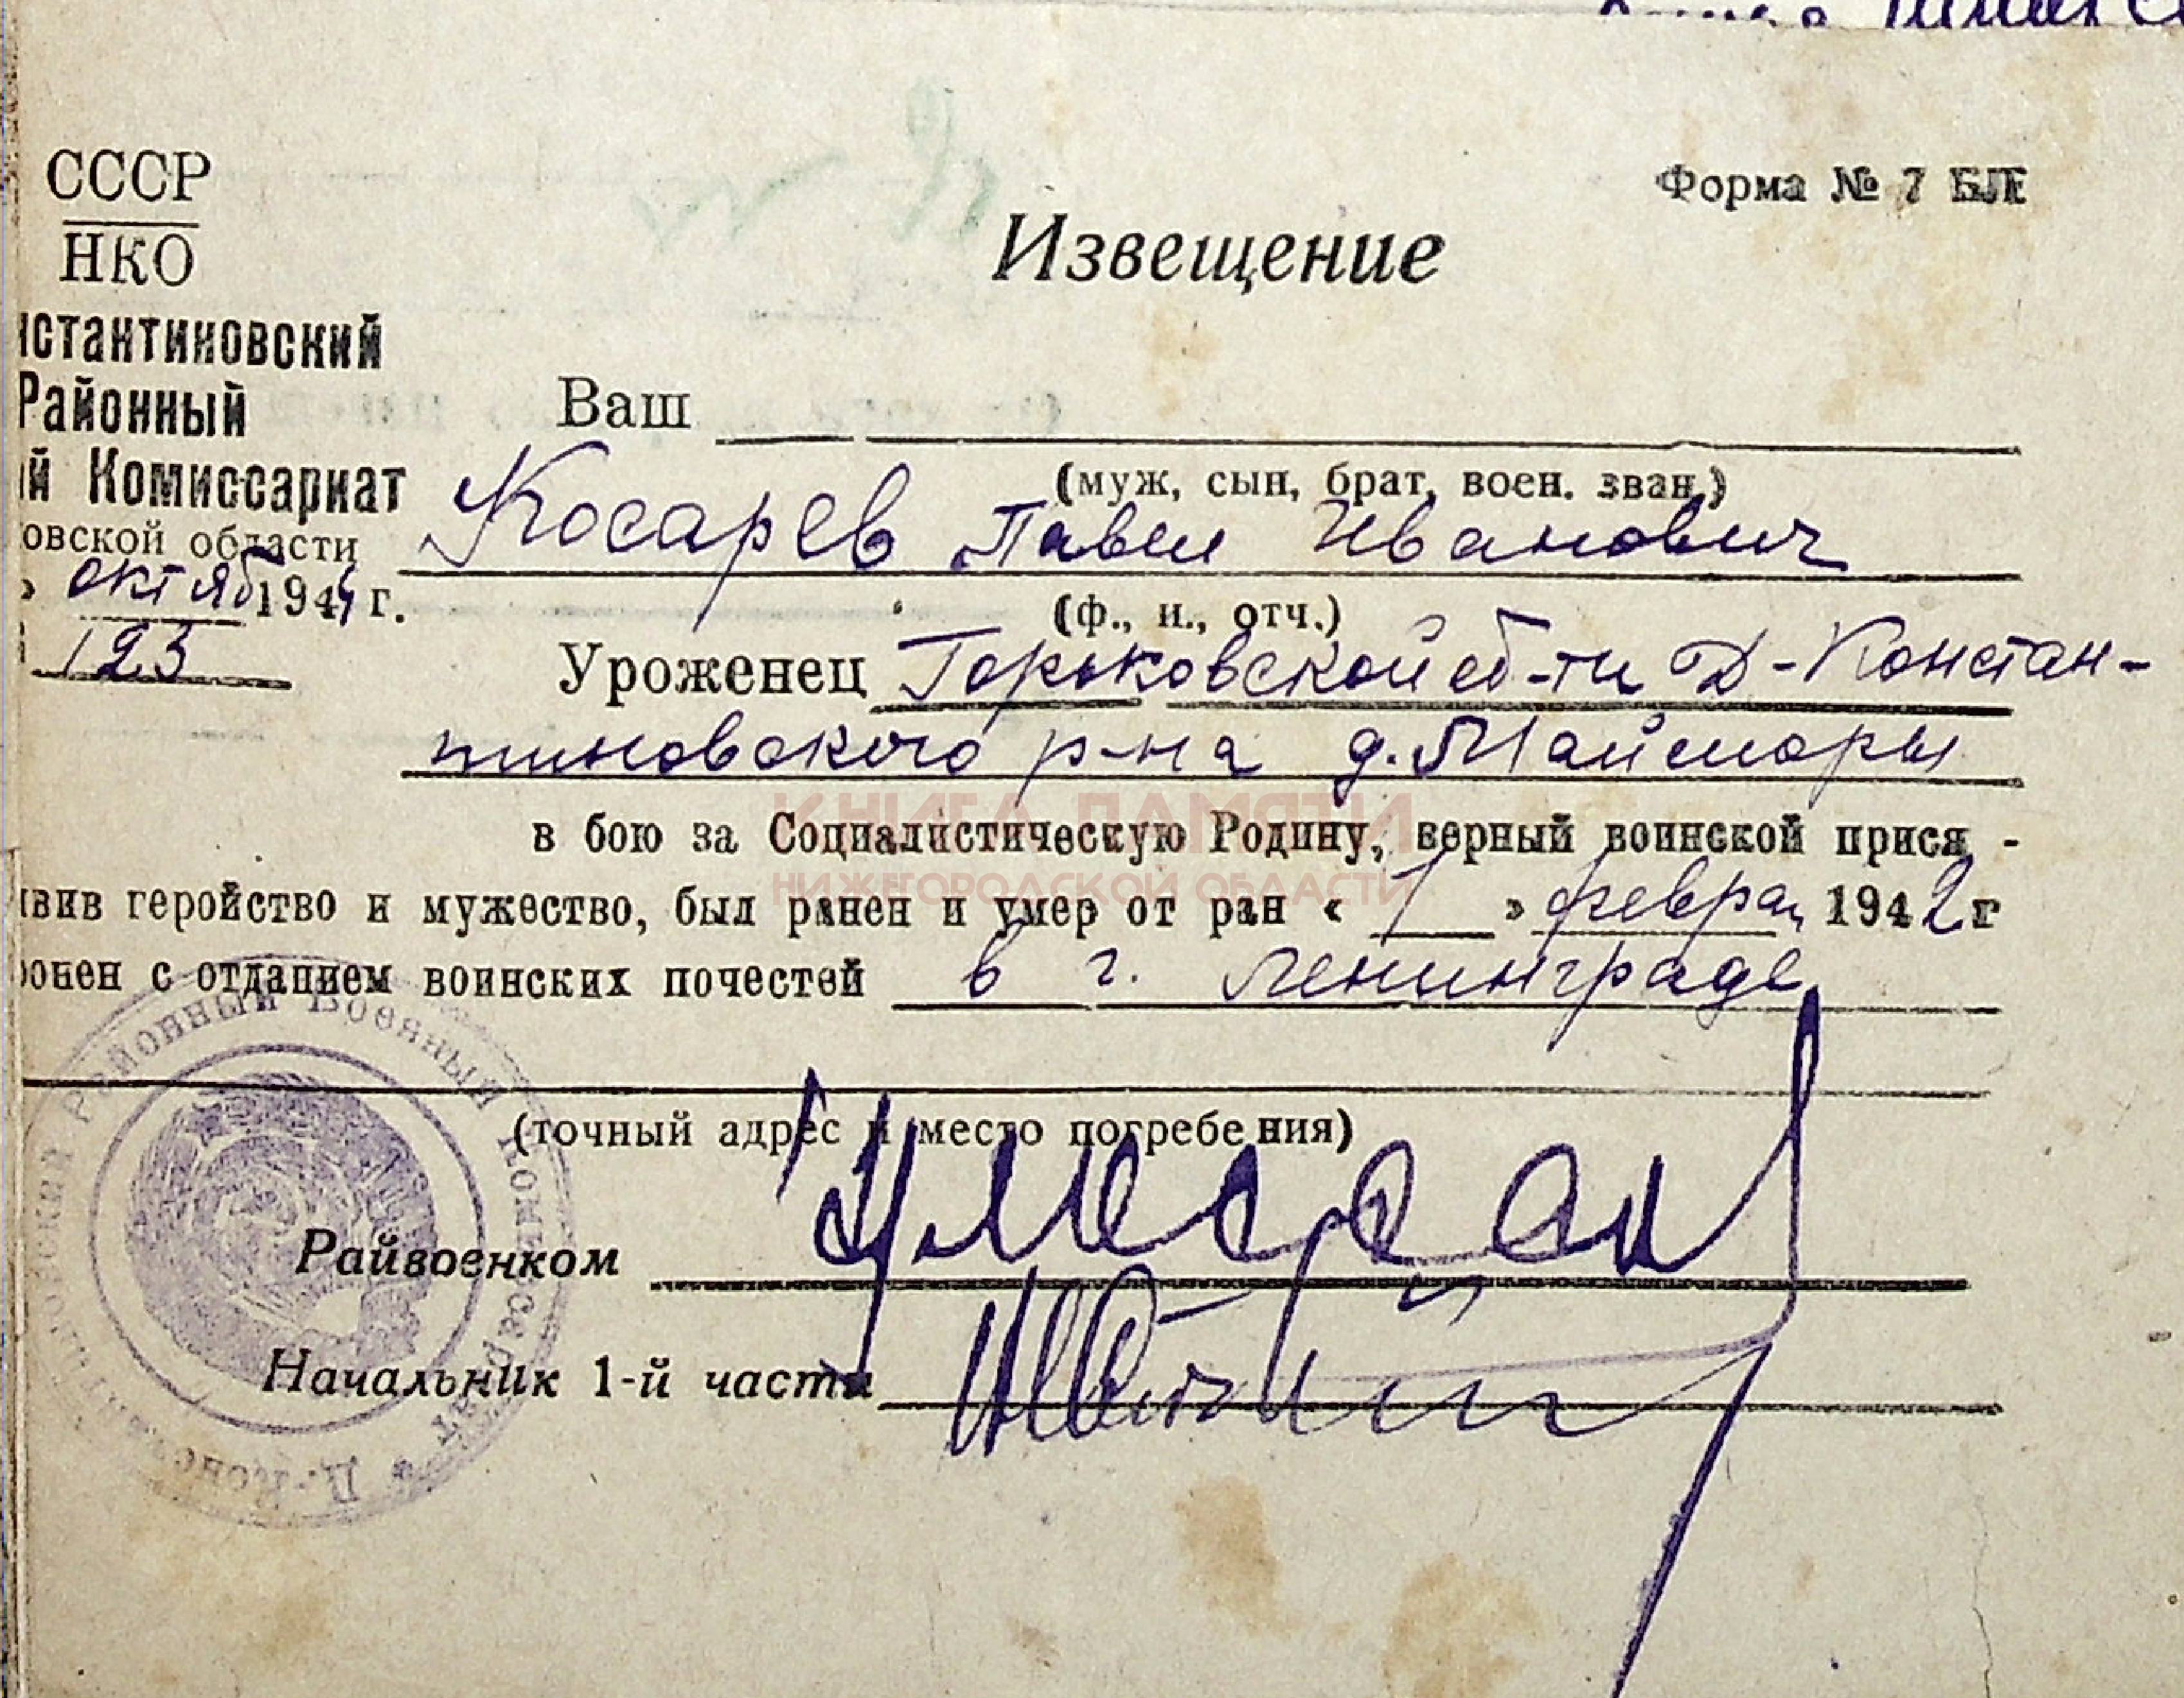 СССР
НКО
Форма № 7 БЛЕ
Извещение
нстантиновский
Районный
ий Комиссариат
овской области
» октяб 1944 г.
123
Ваш
(муж, сын, брат, воен. зван.)
Косарев Павел Иванович
(ф., и., отч.)
Уроженец Горьковской об-ти Д-Констан-
тиновского р-на д. Майморы
КНИГА ПАМЯТИ
НИЖЕГОРОДСКОЙ ОБЛАСТИ
в бою за Социалистическую Родину, верный воинской прися -
явив геройство и мужество, был ранен и умер от ран « 1 » феврал 1942 г
ронен с отданием воинских почестей в г. Ленинграде
(точный адрес и место погребения)
Райвоенком
Начальник 1-й части
Районный Военный Комиссариат * Д.-Конс